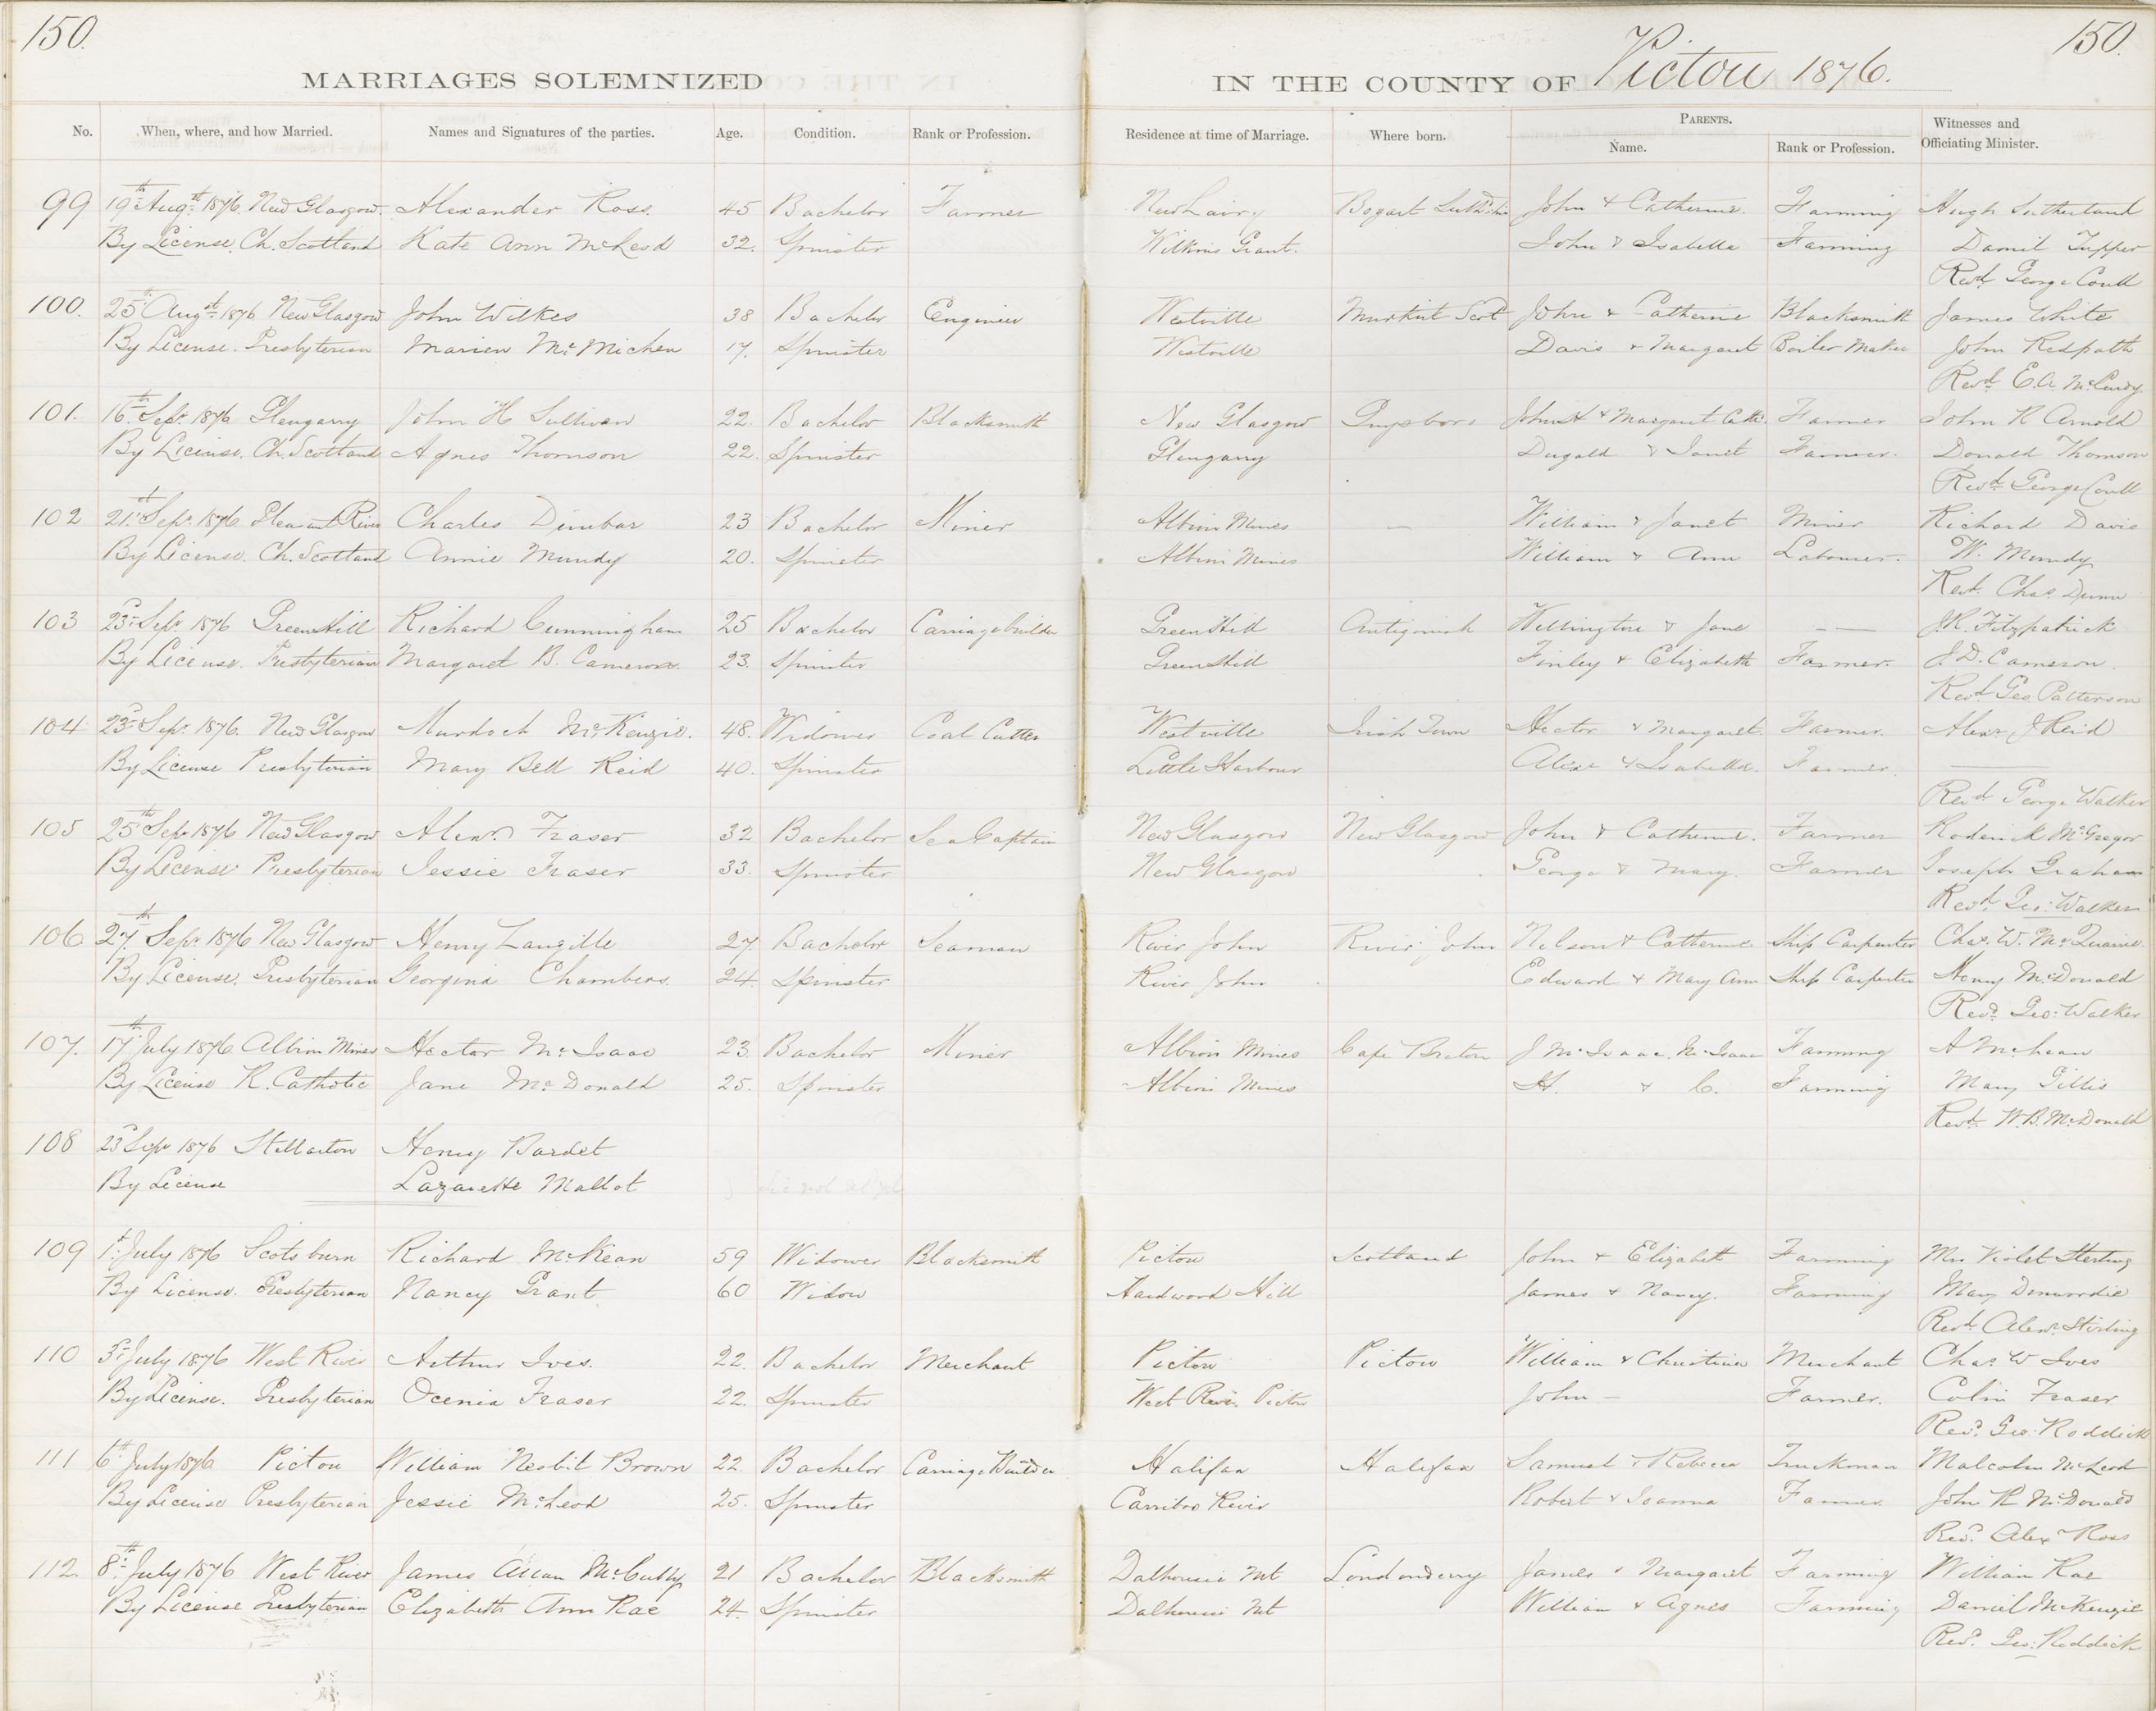 150.
150.
MARRIAGES SOLEMNIZED
IN THE COUNTY OF Pictou 1876.
No. When, where, and how Married. Names and Signatures of the parties. Age. Condition. Rank or Profession. Residence at time of Marriage. Where born. PARENTS. Name. Rank or Profession. Witnesses and Officiating Minister.
99 19th Augst 1876 New Glasgow. Alexander Ross. 45 Bachelor Farmer New Lairg John & Catherine. Farming Hugh Sutherland
By License. Ch. Scotland Kate Ann McLeod 32. Spinster Wilkins Grant. John & Isabella Farming Daniel Tupper
Revd. George Coull
100. 25th Augst 1876 New Glasgow John Wilkes 38 Bachelor Engineer Westville Scot John & Catherine Blacksmith James White
By License. Presbyterian McMichen 17. Spinster Westville & Margaret Boiler Maker John Redpath
Revd. E.A. McCurdy
101. 16th Sepr. 1876 Glengarry John H Sullivan 22. Bachelor Blacksmith New Glasgow Guysboro John H & Margaret Farmer John R Arnold
By License. Ch. Scotland Agnes Thomson 22. Spinster Glengarry Dugald & Janet Farmer. Donald Thomson
Revd. George Coull
102 21st Sepr. 1876 Pleasant River Charles Dunbar 23 Bachelor Miner Albion Mines — William & Janet Miner Richard Davis
By License. Ch. Scotland Annie Mundy 20. Spinster Albion Mines William & Ann Labourer. W. Mundy
Revd. Chas. Dunn
103 23rd Sepr. 1876 Green Hill Richard Cunningham 25 Bachelor Carriage builder Green Hill Antigonish Wellington & Jane — — J.R. Fitzpatrick
By License. Presbyterian Margaret B. Cameron. 23. Spinster Green Hill Finley & Elizabeth Farmer. J.D. Cameron.
Revd. Geo Patterson
104 23rd Sepr. 1876. New Glasgow Murdoch McKenzie. 48. Widower Coal Cutter Westville Irish Town Hector & Margaret. Farmer. Alexr J Reid
By License Presbyterian Mary Bell Reid 40. Spinster Little Harbour & Isabella. Farmer. —
Revd. George Walker
105 25th Sepr 1876 New Glasgow Alexr. Fraser 32 Bachelor Sea Captain New Glasgow New Glasgow John & Catherine. Farmer Roderick McGregor
By License Presbyterian Jessie Fraser 33. Spinster New Glasgow George & Mary. Farmer Joseph Graham
Revd. Geo: Walker
106 27th Sepr. 1876 New Glasgow Henry Langille 27 Bachelor Seaman River John River John Nelson & Catherine Ship Carpenter Chas. W.
By License. Presbyterian Georgina Chambers. 24. Spinster River John Edward & Mary Ann Ship Carpenter Henry McDonald
Revd. Geo: Walker
107. 17th July 1876 Albion Mines Hector McIsaac 23. Bachelor Miner Albion Mines Cape Breton J McIsaac. McIsaac Farming A McLean
By License R. Catholic Jane McDonald 25. Spinster Albion Mines H. & C. Farming Mary Gillis
Revd. W.B. McDonald
108 23rd Sepr 1876 Stellarton Henry Bardet
By License Lazarette Mallot
109 1st July 1876 Scotsburn Richard McKean 59 Widower Blacksmith Pictou Scotland John & Elizabeth Farming Mrs Violet Sterling
By License. Presbyterian Nancy Grant 60 Widow Hardwood Hill James & Nancy. Farming Mary Dinwoodie
Revd. Alexr. Stirling
110 3rd July 1876 West River Arthur Ives. 22. Bachelor Merchant Pictou Pictou William & Christina Merchant Chas W Ives
By License. Presbyterian Ocenia Fraser 22. Spinster West River Pictou John — Farmer. Colin Fraser
Revd. Geo: Roddick
111 6th July 1876 Pictou William Nesbit Brown 22 Bachelor Carriage Builder Halifax Halifax Samuel & Rebecca Truckman Malcolm McLeod
By License Presbyterian Jessie McLeod 25. Spinster Carriboo River Robert & Joanna Farmer. John R McDonald
Revd. Alexr Ross
112. 8th July 1876 West River James Allan McCully 21 Bachelor Blacksmith Dalhousie Mt Londonderry James & Margaret Farming William Rae
By License Presbyterian Elizabeth Ann Rae 24. Spinster Dalhousie Mt William & Agnes Farming Daniel McKenzie
Revd. Geo: Roddick